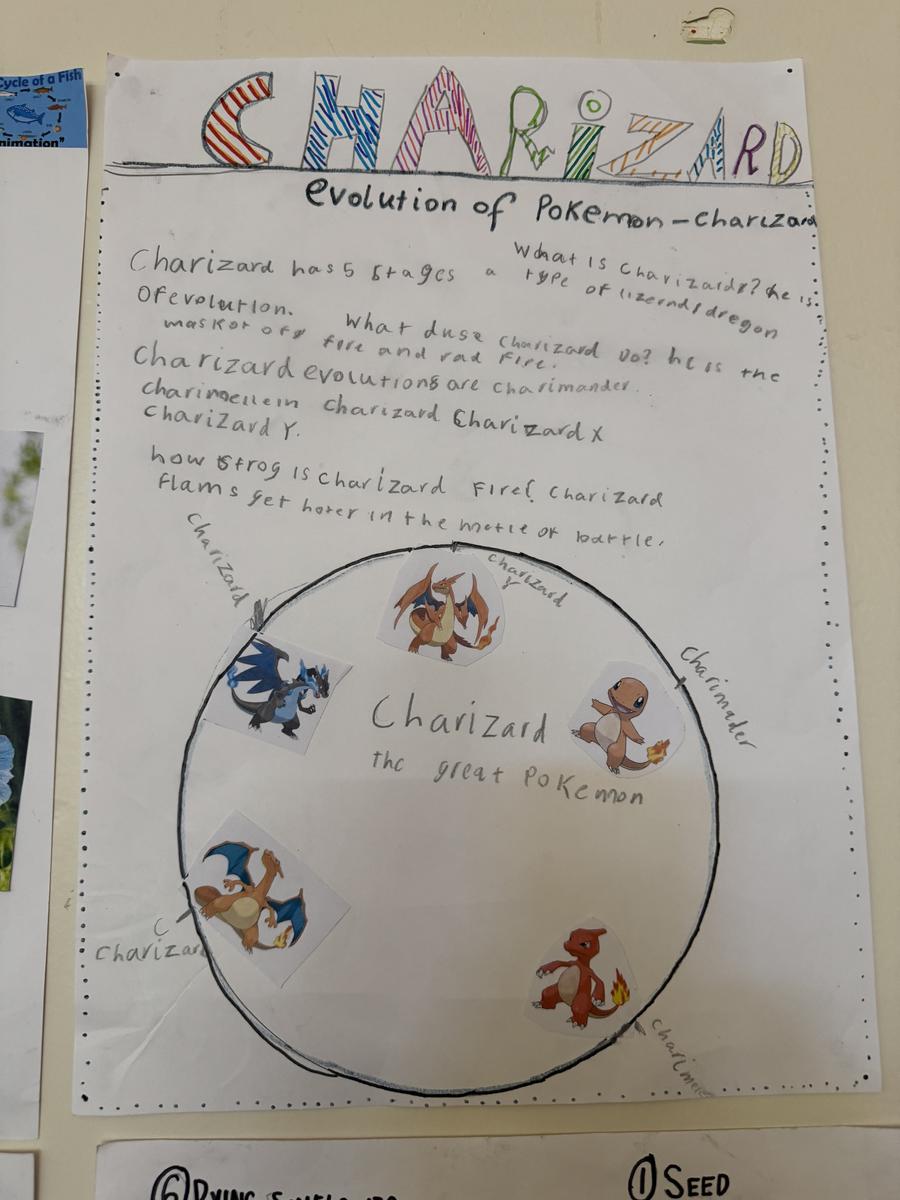 Cycle of a Fish
nimation"
CHARiZARD
evolution of Pokemon - charizard
Charizard has 5 stages
of evolution.
What is Charizard? he is
a type of lizernd/dregon
What duse charizard do? he is the
maskot of fire and rad fire.
Charizard evolutions are charimander.
charizard Charizard X
Charizard Y.
how strog is charizard fire? Charizard
flams get hoter in the of battle.
charizard
charizard
Y
Charimader
Charizard
the great Pokemon
C
charizard
charime
⑥ DYING
① SEED